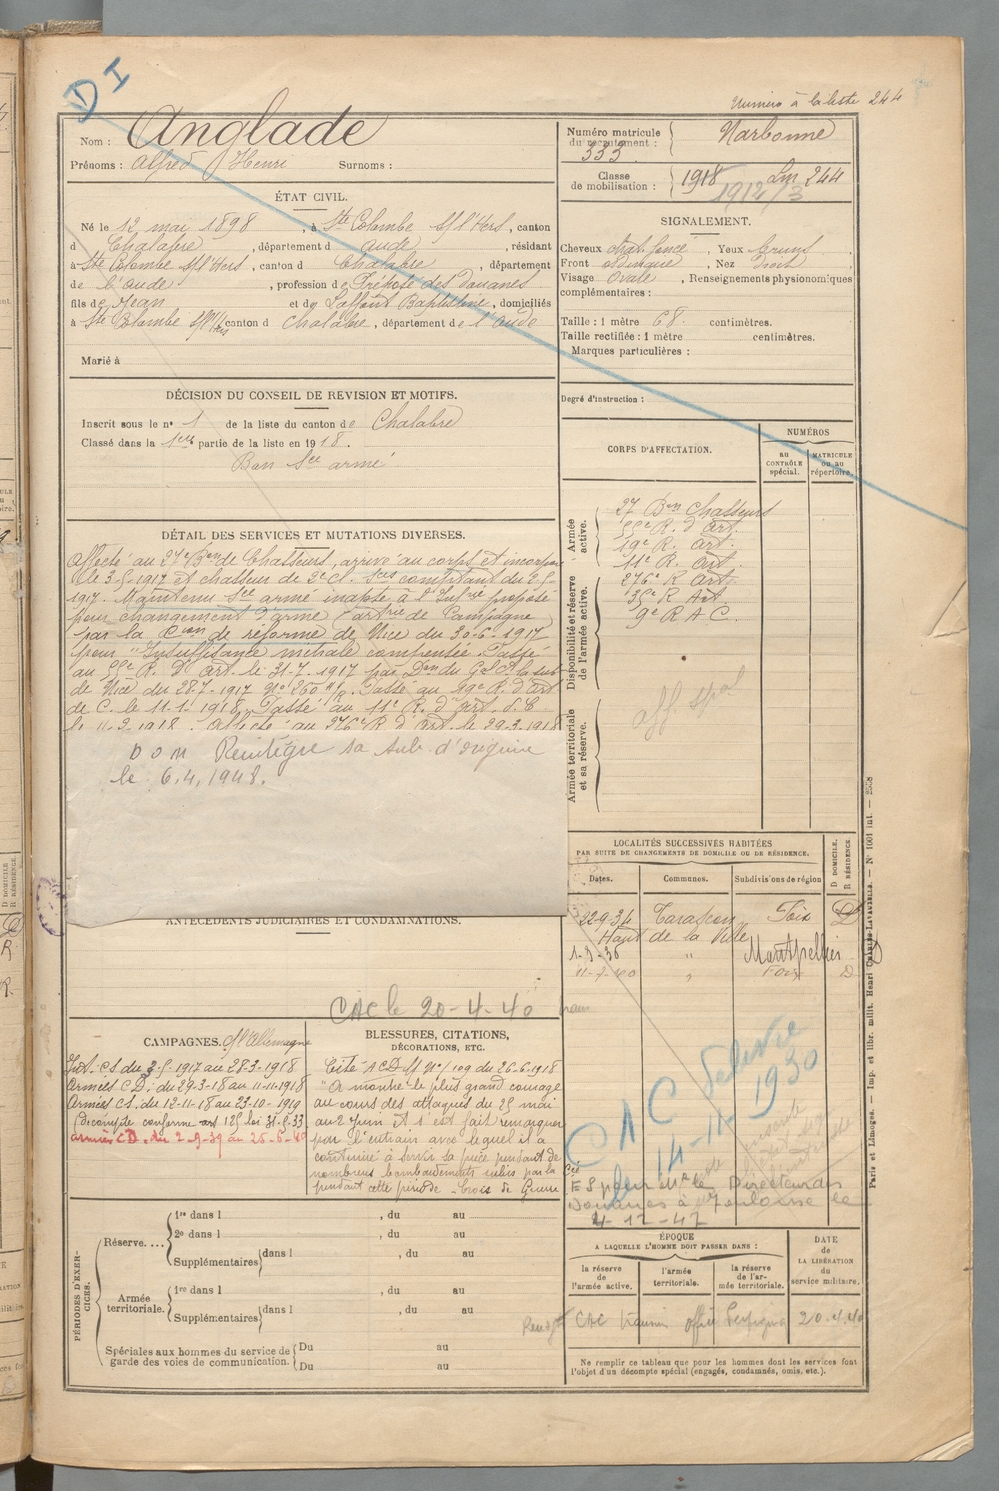 DI
Numéro à la liste 244
Nom : Anglade
Prénoms : Alfred Henri Surnoms :
Numéro matricule du recrutement : 333 Narbonne
Classe de mobilisation : 1918 Lm 244
1912/3
ÉTAT CIVIL.
Né le 12 mai 1898, à Ste Colombe s/l'Hers, canton
d Chalabre, département d Aude, résidant
à Ste Colombe s/l'Hers, canton d Chalabre, département
de l'Aude, profession de Préposé des Douanes
fils de Jean et de Laffont Baptistine, domiciliés
à Ste Colombe s/l'Hers canton d Chalabre, département de l'Aude
Marié à
SIGNALEMENT.
Cheveux chat. foncé, Yeux bruns
Front , Nez droit
Visage Ovale, Renseignements physionomiques
complémentaires :
Taille : 1 mètre 68 centimètres.
Taille rectifiée : 1 mètre centimètres.
Marques particulières :
Degré d'instruction :
DÉCISION DU CONSEIL DE REVISION ET MOTIFS.
Inscrit sous le n° 1 de la liste du canton de Chalabre
Classé dans la 1ère partie de la liste en 1918.
Bon Sce armé.
DÉTAIL DES SERVICES ET MUTATIONS DIVERSES.
Affecté au 27e Bon de Chasseurs, arrivé au corps et incorporé
le 3-5-1917 et chasseur de 2e Cl. Sces comptant du 2-5-
1917. Maintenu Sce armé inapte à l'Infrie proposé
pour changement d'arme artrie de Campagne
par la Cion de réforme de Nice du 30-6-1917
pour "Insuffisance mitrale compensée. Passé
au 55e R. D'art. le 31-7-1917 par Don du Gal Ct la sub.
de Nice du 28-7-1917 No 260 . Passé au 19e R. d'art
de C. le 11-1-1918. Passé au 11e R. d'art. d. C
le 11-3-1918. Affecté au 276e R d'art. le 29-3-1918
DOM Réintègre sa sub. d'origine
le 6.4.1948.
CORPS D'AFFECTATION.
NUMÉROS
au CONTRÔLE spécial.
MATRICULE ou au répertoire.
Armée active.
27 Bon Chasseurs
55e R. d'Art.
19e R. Art.
11e R. Art.
Disponibilité et réserve de l'armée active.
276e R Art.
35e R Art
9e R A C.
Armée territoriale et sa réserve.
aff. spal
LOCALITÉS SUCCESSIVES HABITÉES
PAR SUITE DE CHANGEMENTS DE DOMICILE OU DE RÉSIDENCE.
Dates. Communes. Subdivisions de région
D DOMICILE. R RÉSIDENCE
22-9-34 Tarascon Foix D
Haut de la Ville
1-3-36 " Montpellier D
11-7-40 " Foix D
ANTÉCÉDENTS JUDICIAIRES ET CONDAMNATIONS.
CAC le 20-4-40
CAMPAGNES. C/ l'Allemagne
Int. CS du 3-5-1917 au 28-3-1918
Armées CD. du 29-3-18 au 11-11-1918
Armées CS. du 12-11-18 au 23-10-1919
Décompte conforme art 125 loi 31-5-33
armées CD. du 2-9-39 au 25-6-40
BLESSURES, CITATIONS,
DÉCORATIONS, ETC.
Cité ACD No 109 du 26-6-1918
"A montré le plus grand courage
au cours des attaques du 25 mai
au 2 juin et s'est fait remarquer
par l'entrain avec lequel il a
continué à servir sa pièce pendant de
nombreux bombardements subis par la
pendant cette période - Croix de Guerre
CAC
14-11-1930
ES pour Mr le Directeur des
Douanes à Toulouse le
4-12-47
PÉRIODES D'EXERCICES.
Réserve....
1re dans l , du au
2e dans l , du au
Supplémentaires dans l , du au
Armée territoriale.
1re dans l , du au
Supplémentaires dans l , du au
Spéciales aux hommes du service de garde des voies de communication.
Du au
Du au
ÉPOQUE
A LAQUELLE L'HOMME DOIT PASSER DANS :
la réserve de l'armée active.
l'armée territoriale.
la réserve de l'armée territoriale.
DATE de LA LIBÉRATION du service militaire.
CAC Perpignan 20.4.40
Ne remplir ce tableau que pour les hommes dont les services font
l'objet d'un décompte spécial (engagés, condamnés, omis, etc.).
Paris et Limoges. — Imp. et libr. milit. Henri CHARLES-LAVAUZELLE. — N° 1001 int. — 2558